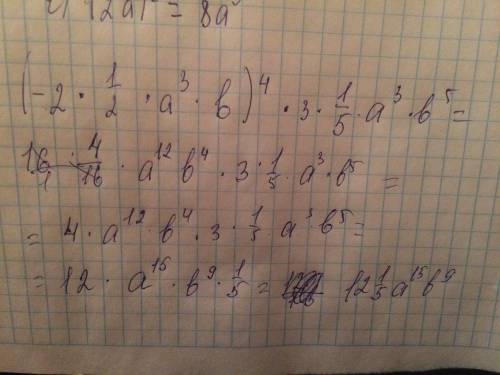 12a) = 8a
(-2 · 1/2 · a³ · b)⁴ · 3 · 1/5 · a³ · b⁵ =
16/1 · 4/16 · a¹² b⁴ · 3 · 1/5 · a³ · b⁵ =
= 4 · a¹² · b⁴ · 3 · 1/5 · a³ b⁵ =
= 12 · a¹⁵ · b⁹ · 1/5 = 12 1/5 a¹⁵ b⁹